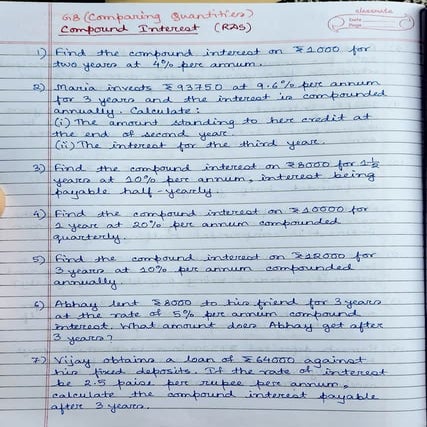 classmate
Date
Page
G8 (Comparing Quantities)
Compound Interest (RDS)
1) Find the compound interest on ₹1000 for
two years at 4% per annum.
2) Maria invests ₹93750 at 9.6% per annum
for 3 years and the interest is compounded
annually. Calculate:
(i) The amount standing to her credit at
the end of second year.
(ii) The interest for the third year.
3) Find the compound interest on ₹8000 for 1½
years at 10% per annum, interest being
payable half-yearly.
4) Find the compound interest on ₹10000 for
1 year at 20% per annum compounded
quarterly.
5) Find the compound interest on ₹12000 for
3 years at 10% per annum compounded
annually.
6) Abhay lent ₹8000 to his friend for 3 years
at the rate of 5% per annum compound
interest. What amount does Abhay get after
3 years?
7) Vijay obtains a loan of ₹64000 against
his fixed deposits. If the rate of interest
be 2.5 paise per rupee per annum,
calculate the compound interest payable
after 3 years.